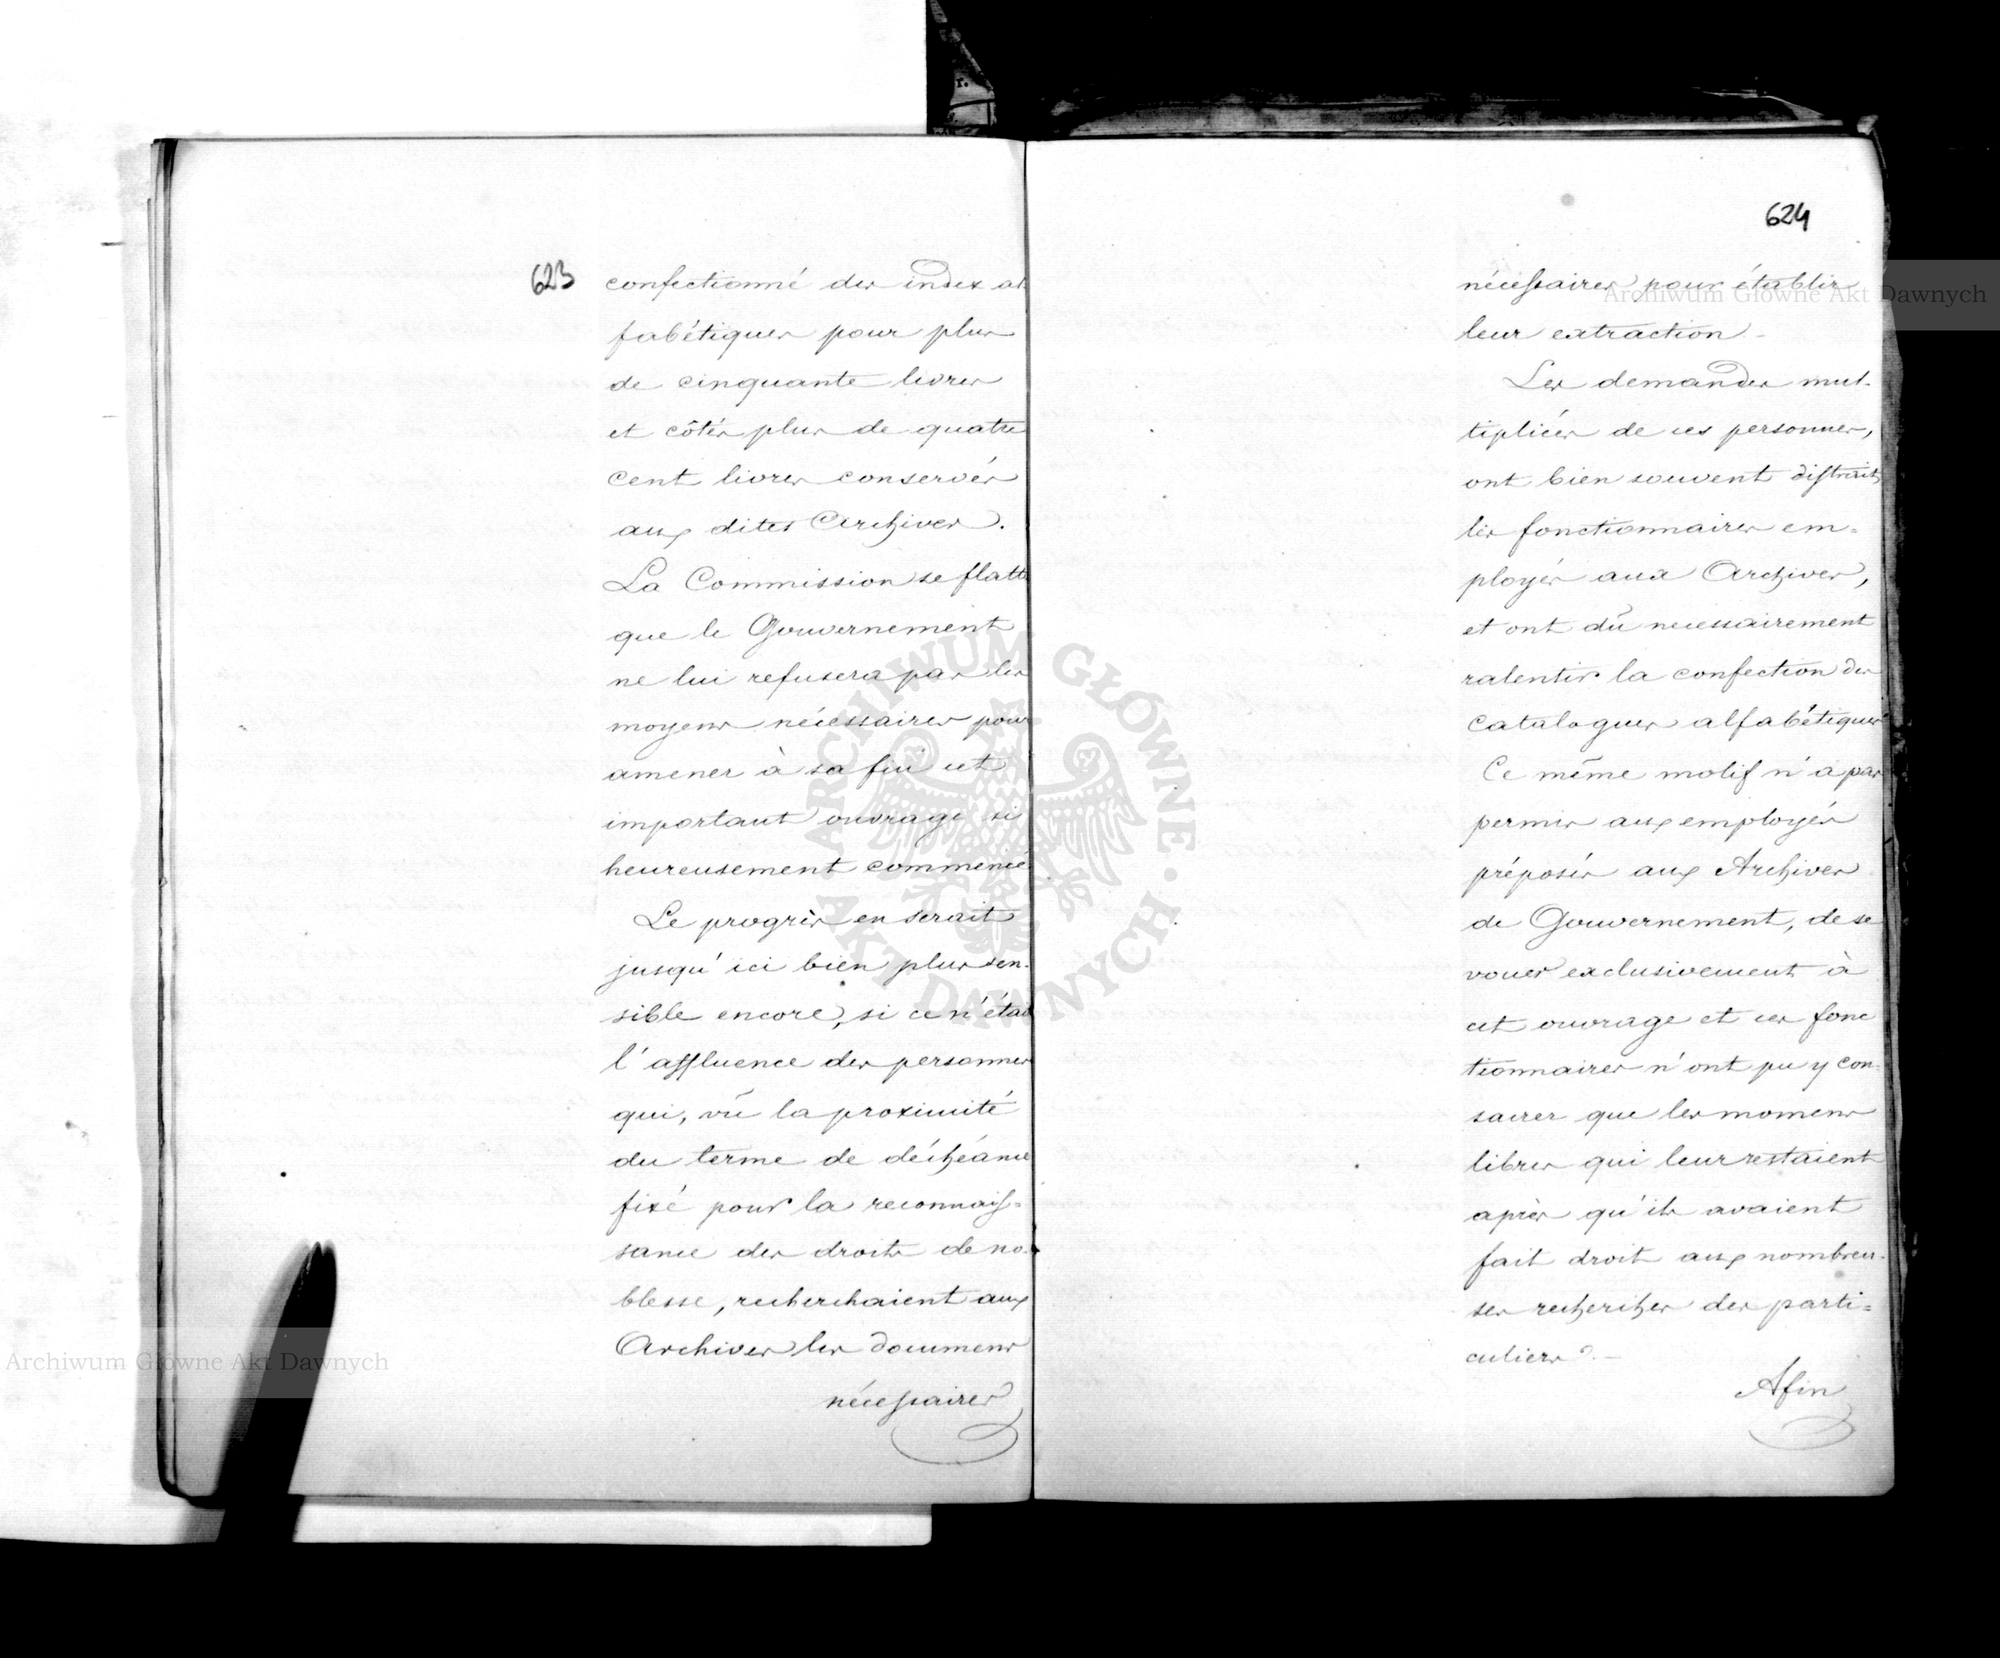 623
confectionné des index al
fabétiques pour plus
de cinquante livres
et côtés plus de quatre
cent livres conservés
aux dites Archives.
La Commission se flatte
que le Gouvernement
ne lui refusera pas les
moyens nécessaires pour
amener à sa fin cet
important ouvrage si
heureusement commencé
Le progrès en serait
jusqu'ici bien plus sen-
sible encore, si ce n'était
l'affluence des personnes
qui, vû la proximité
du terme de déchéance
fixé pour la reconnais=
sance des droits de no-
blesse, recherchaient aux
Archives les documens
nécessaires
624
nécessaires pour établir
leur extraction.-
Les demandes mul-
tipliées de ces personnes,
ont bien souvent distrait
les fonctionnaires em=
ployés aux Archives,
et ont dû necessairement
ralentir la confection des
catalogues alfabétiques
Ce même motif n'a pas
permis aux employés
préposés aux Archives
de Gouvernement, de se
vouer exclusivement à
cet ouvrage et ces fonc
tionnaires n'ont pu y con-
sacrer que les momens
libres qui leur restaient
après qu'ils avaient
fait droit aux nombreu-
ses recherches des parti=
culiers.-
Afin
Archiwum Główne Akt Dawnych
Archiwum Główne Akt Dawnych
ARCHIWUM GŁÓWNE AKT DAWNYCH